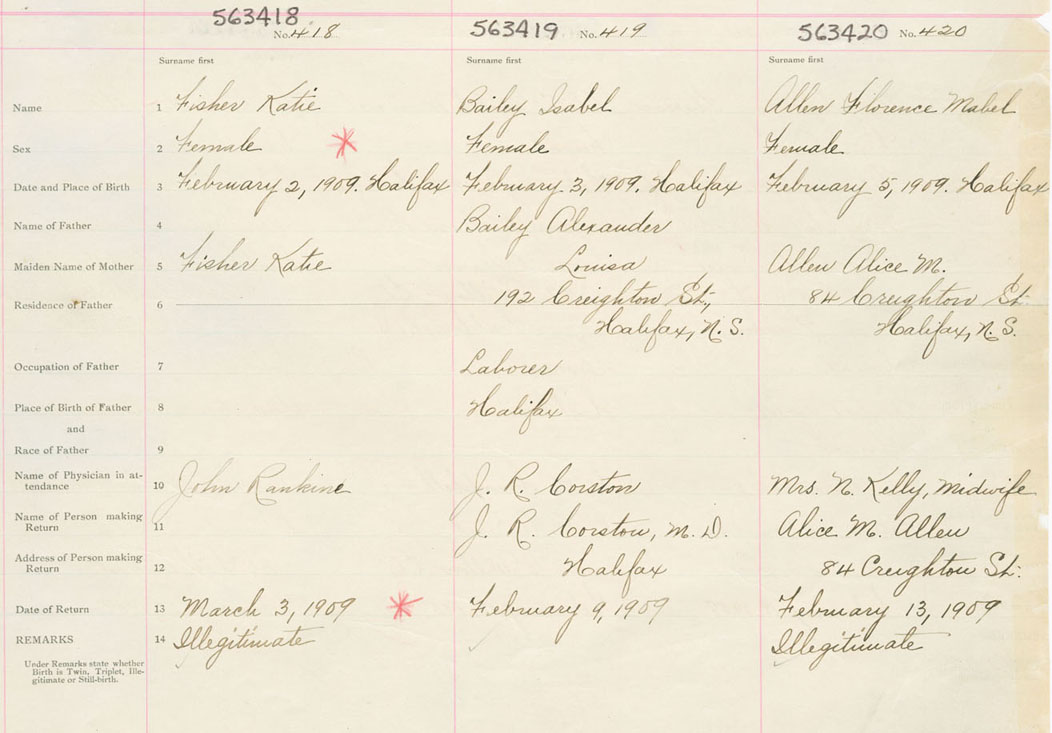 563418 563419 563420
No. 418 No. 419 No. 420
Surname first Surname first Surname first
Name 1 Fisher Katie Bailey Isabel Allen Florence Mabel
Sex 2 Female Female Female
Date and Place of Birth 3 February 2, 1909. Halifax February 3, 1909. Halifax February 5, 1909. Halifax
Name of Father 4 Bailey Alexander
Maiden Name of Mother 5 Fisher Katie Louisa Allen Alice M.
Residence of Father 6 192 Creighton St., 84 Creighton St.
Halifax, N. S. Halifax, N. S.
Occupation of Father 7 Laborer
Place of Birth of Father 8 Halifax
and
Race of Father 9
Name of Physician in at-
tendance 10 John Rankine J. R. Corston Mrs. N. Kelly, Midwife
Name of Person making
Return 11 J. R. Corston, M. D. Alice M. Allen
Address of Person making
Return 12 Halifax 84 Creighton St.
Date of Return 13 March 3, 1909 February 9, 1909 February 13, 1909
REMARKS 14 Illegitimate Illegitimate
Under Remarks state whether
Birth is Twin, Triplet, Ille-
gitimate or Still-birth.